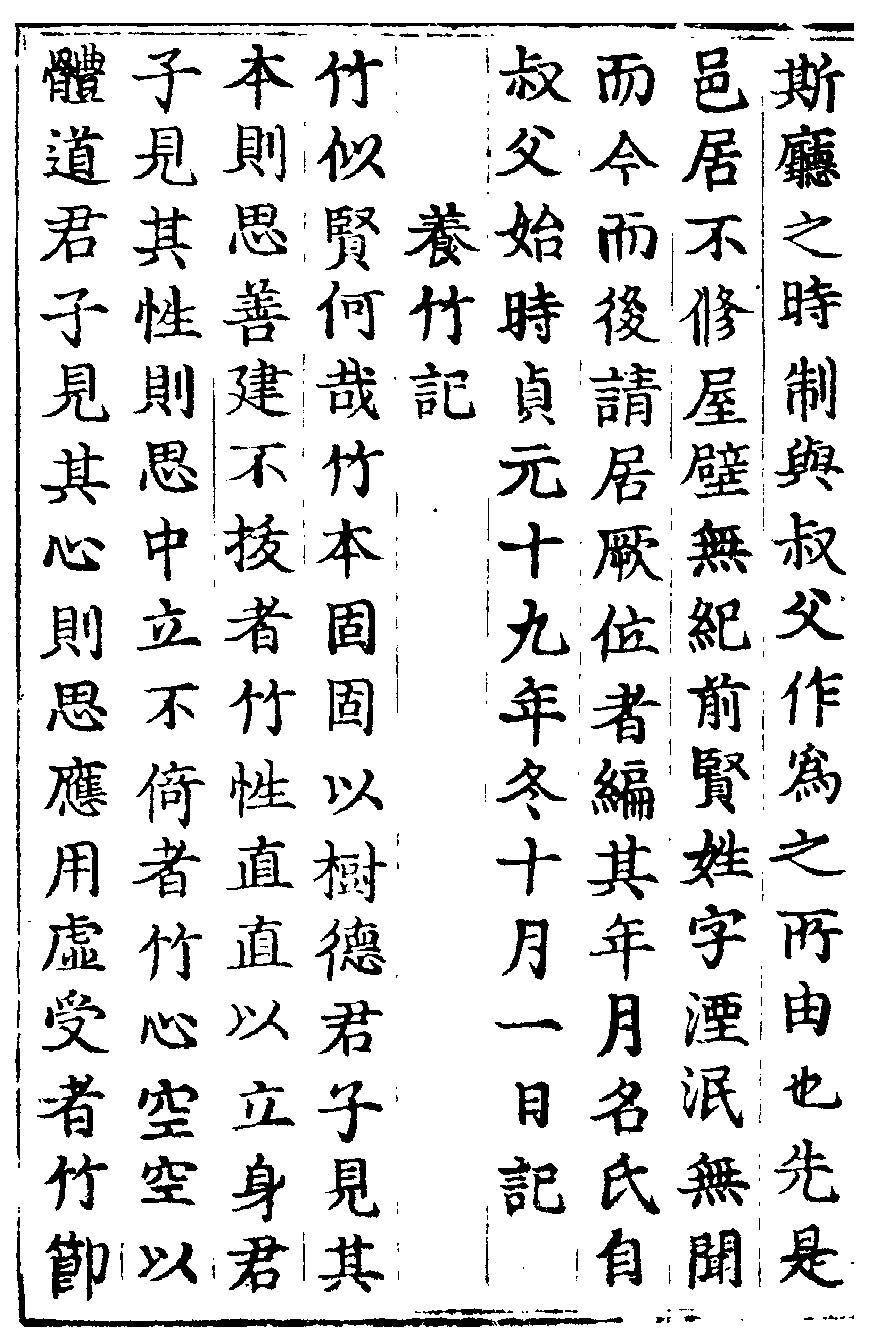 斯廳之時制與叔父作爲之所由也先是
邑居不修屋壁無紀前賢姓字湮泯無聞
而今而後請居厥位者編其年月名氏自
叔父始時貞元十九年冬十月一日記
養竹記
竹似賢何哉竹本固固以樹德君子見其
本則思善建不拔者竹性直直以立身君
子見其性則思中立不倚者竹心空空以
體道君子見其心則思應用虛受者竹節